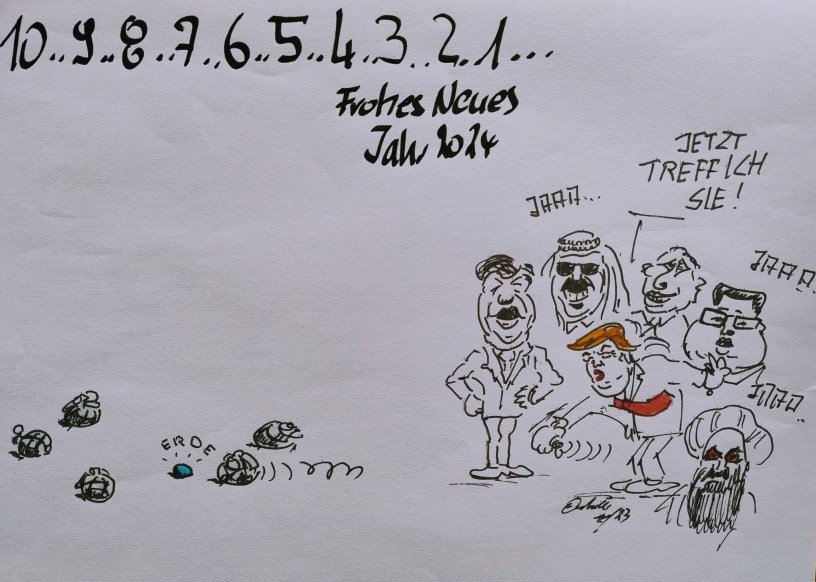 10..9..8..7..6..5..4..3..2..1...
Frohes Neues
Jahr 2024
JETZT
TREFF ICH
SIE!
JAAA...
JAAAA.
JAAAA..
ERDE